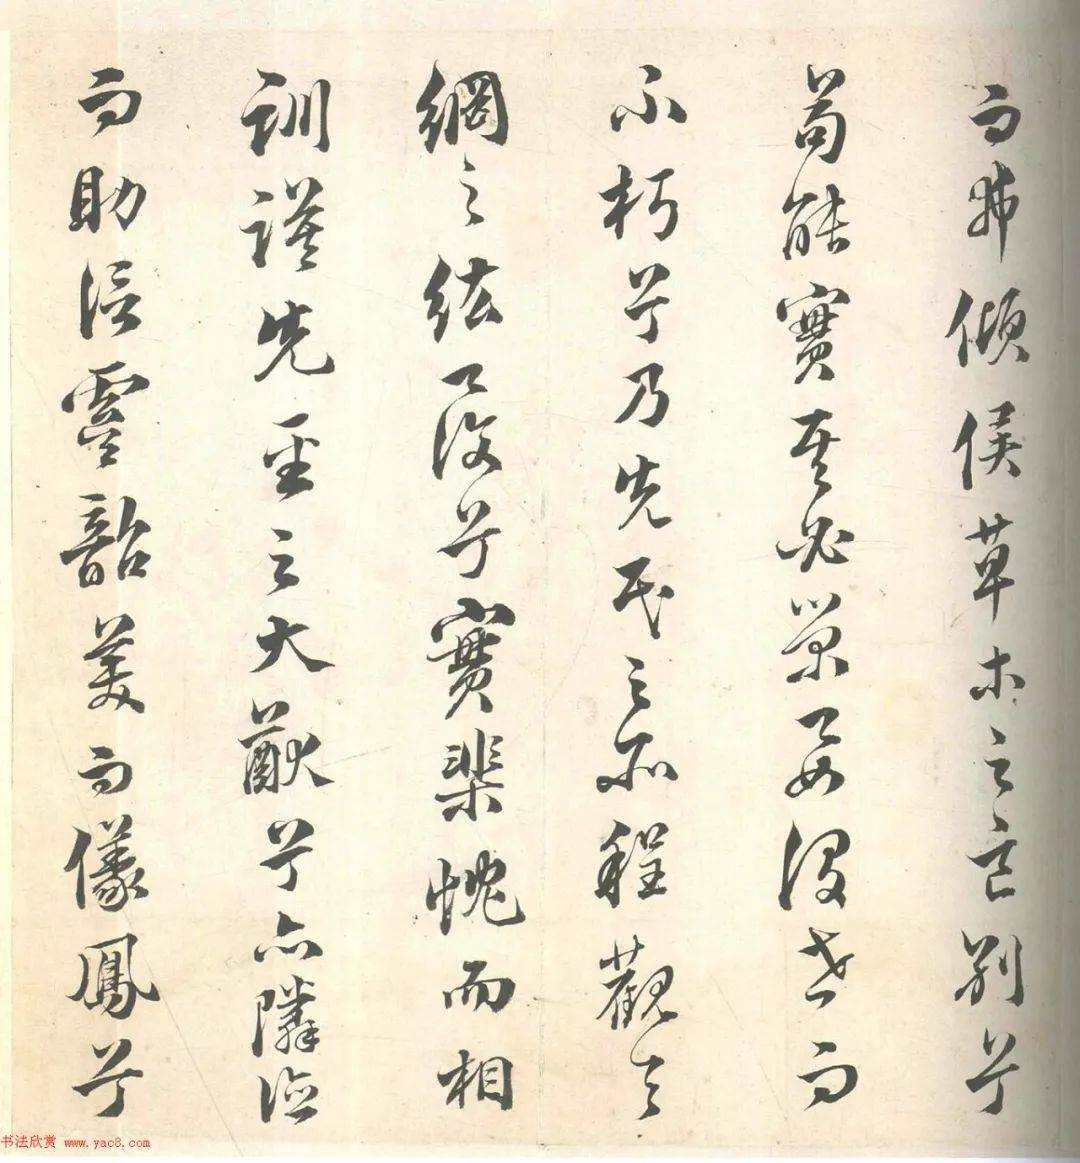 而弗傾侯草木之區別兮
苟能實其必榮要没世而
不朽兮乃先民之所程觀天
網之紘覆兮實棐忱而相
訓謨先聖之大猷兮亦隣德
而助信虞韶美而儀鳳兮
书法欣赏 www.yac8.com